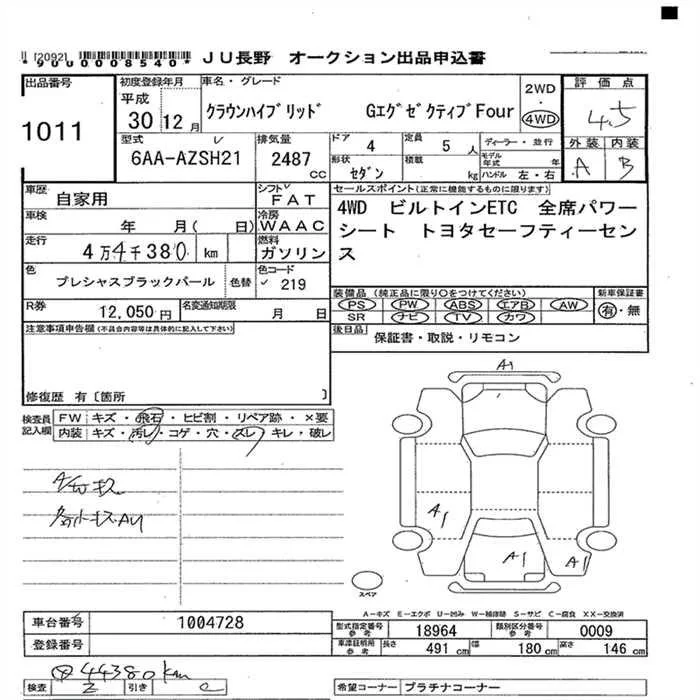 [2092] *9000008540* JU長野 オークション出品申込書
出品番号 1011
初度登録年月 平成 30 12月
車名・グレード クラウンハイブリッド GエグゼクティブFour
2WD・4WD
評価点 4.5
外装 A 内装 B
型式 6AA-AZSH21
排気量 2487 CC
ドア 4 定員 5 人 ディーラー・並行
形状 セダン 積載 kg モデル年式 年 ハンドル 左・右
車歴 自家用
シフト FAT
セールスポイント(正常に機能するものに限ります)
4WD ビルトインETC 全席パワー
シート トヨタセーフティーセン
ス
車検 年 月(日)
冷房 WAAC
走行 4万4千380 km
燃料 ガソリン
色 プレシャスブラックパール 色替
色コード 219
装備品(純正品に限り○をつけてください) 新車保証書
PS PW ABS エアB AW 有・無
SR ナビ TV カワ
R券 12,050円 名変通知期限 月 日
後日品 保証書・取説・リモコン
注意事項申告欄(不具合内容等は具体的に記入して下さい)
修復歴 有〔箇所 〕
検査員記入欄
FW キズ・飛石・ヒビ割・リペア跡・×要
内装 キズ・汚レ・コゲ・穴・スレ・キレ・破レ
A1
A1
A1
A1
スペア
A-キズ E-エクボ U-凹み W-補修跡 S-サビ C-腐食 XX-交換済
車台番号 1004728
登録番号
型式指定番号参考 18964 類別区分番号参考 0009
車庫証明用参考 長さ 491 cm 幅 180 cm 高さ 146 cm
44380km
検査 引き
希望コーナー プラチナコーナー